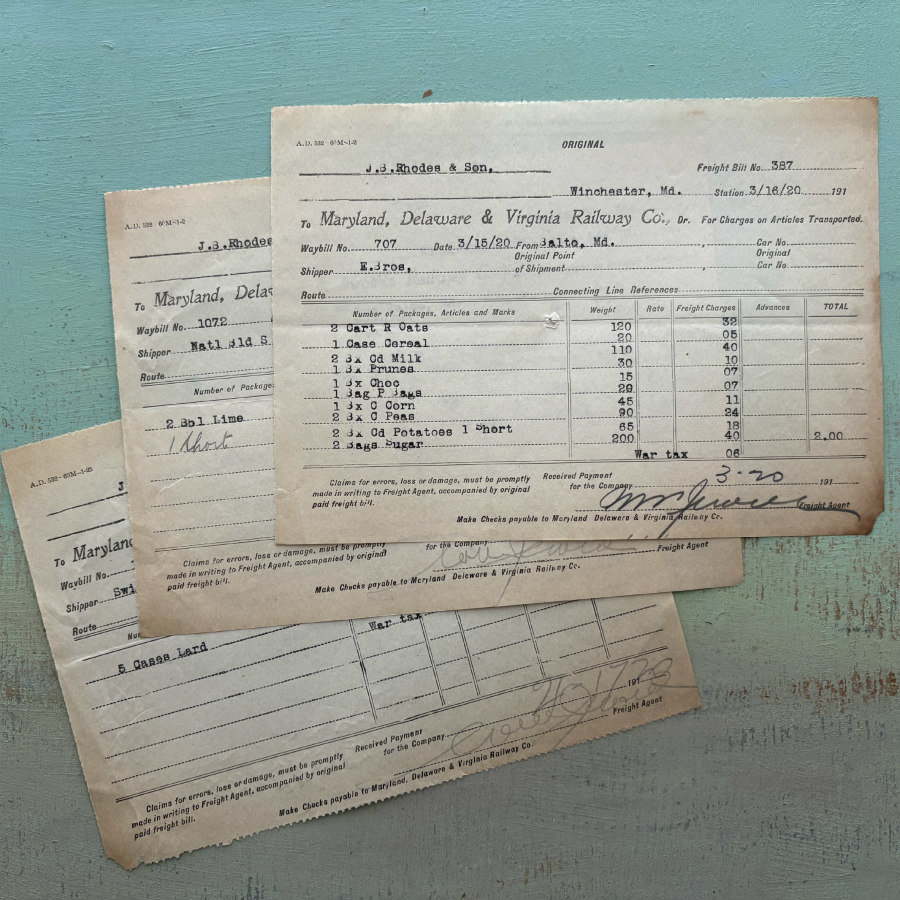 A.D. 532
ORIGINAL
J.B.Rhodes & Son,
Freight Bill No. 387
Winchester, Md. Station 3/16/20 191
To Maryland, Delaware & Virginia Railway Co., Dr. For Charges on Articles Transported.
Waybill No. 707 Date 3/15/20 From Balto, Md. Car No.
Original Point Original
Shipper E.Bros, of Shipment Car No.
Route Connecting Line References
Number of Packages, Articles and Marks Weight Rate Freight Charges Advances TOTAL
2 Cart R Oats 120 32
1 Case Cereal 20 05
2 Bx Cd Milk 110 40
1 Bx Prunes 30 10
1 Bx Choc 15 07
1 Bag P Bags 29 07
1 Bx C Corn 45 11
2 Bx C Peas 90 24
2 Bx Cd Potatoes 1 Short 65 18
2 Bags Sugar 200 40 2.00
War tax 06
Claims for errors, loss or damage, must be promptly
made in writing to Freight Agent, accompanied by original
paid freight bill.
Received Payment 3-20 191
for the Company Freight Agent
Make Checks payable to Maryland Delaware & Virginia Railway Co.
A.D. 532
J.B.Rhodes
To Maryland, Dela
Waybill No. 1072
Shipper Natl Bld S
Route
Number of Packages
2 Bbl Lime
1 Short
Claims for errors, loss or damage, must be promptly
made in writing to Freight Agent, accompanied by original
paid freight bill.
for the Company Freight Agent
Make Checks payable to Maryland Delaware & Virginia Railway Co.
A.D. 532
J
To Maryland
Waybill No.
Shipper Swi
Route
Nu
War tax
5 Cases Lard
Claims for errors, loss or damage, must be promptly
made in writing to Freight Agent, accompanied by original
paid freight bill.
Received Payment 191
for the Company Freight Agent
Make Checks payable to Maryland, Delaware & Virginia Railway Co.